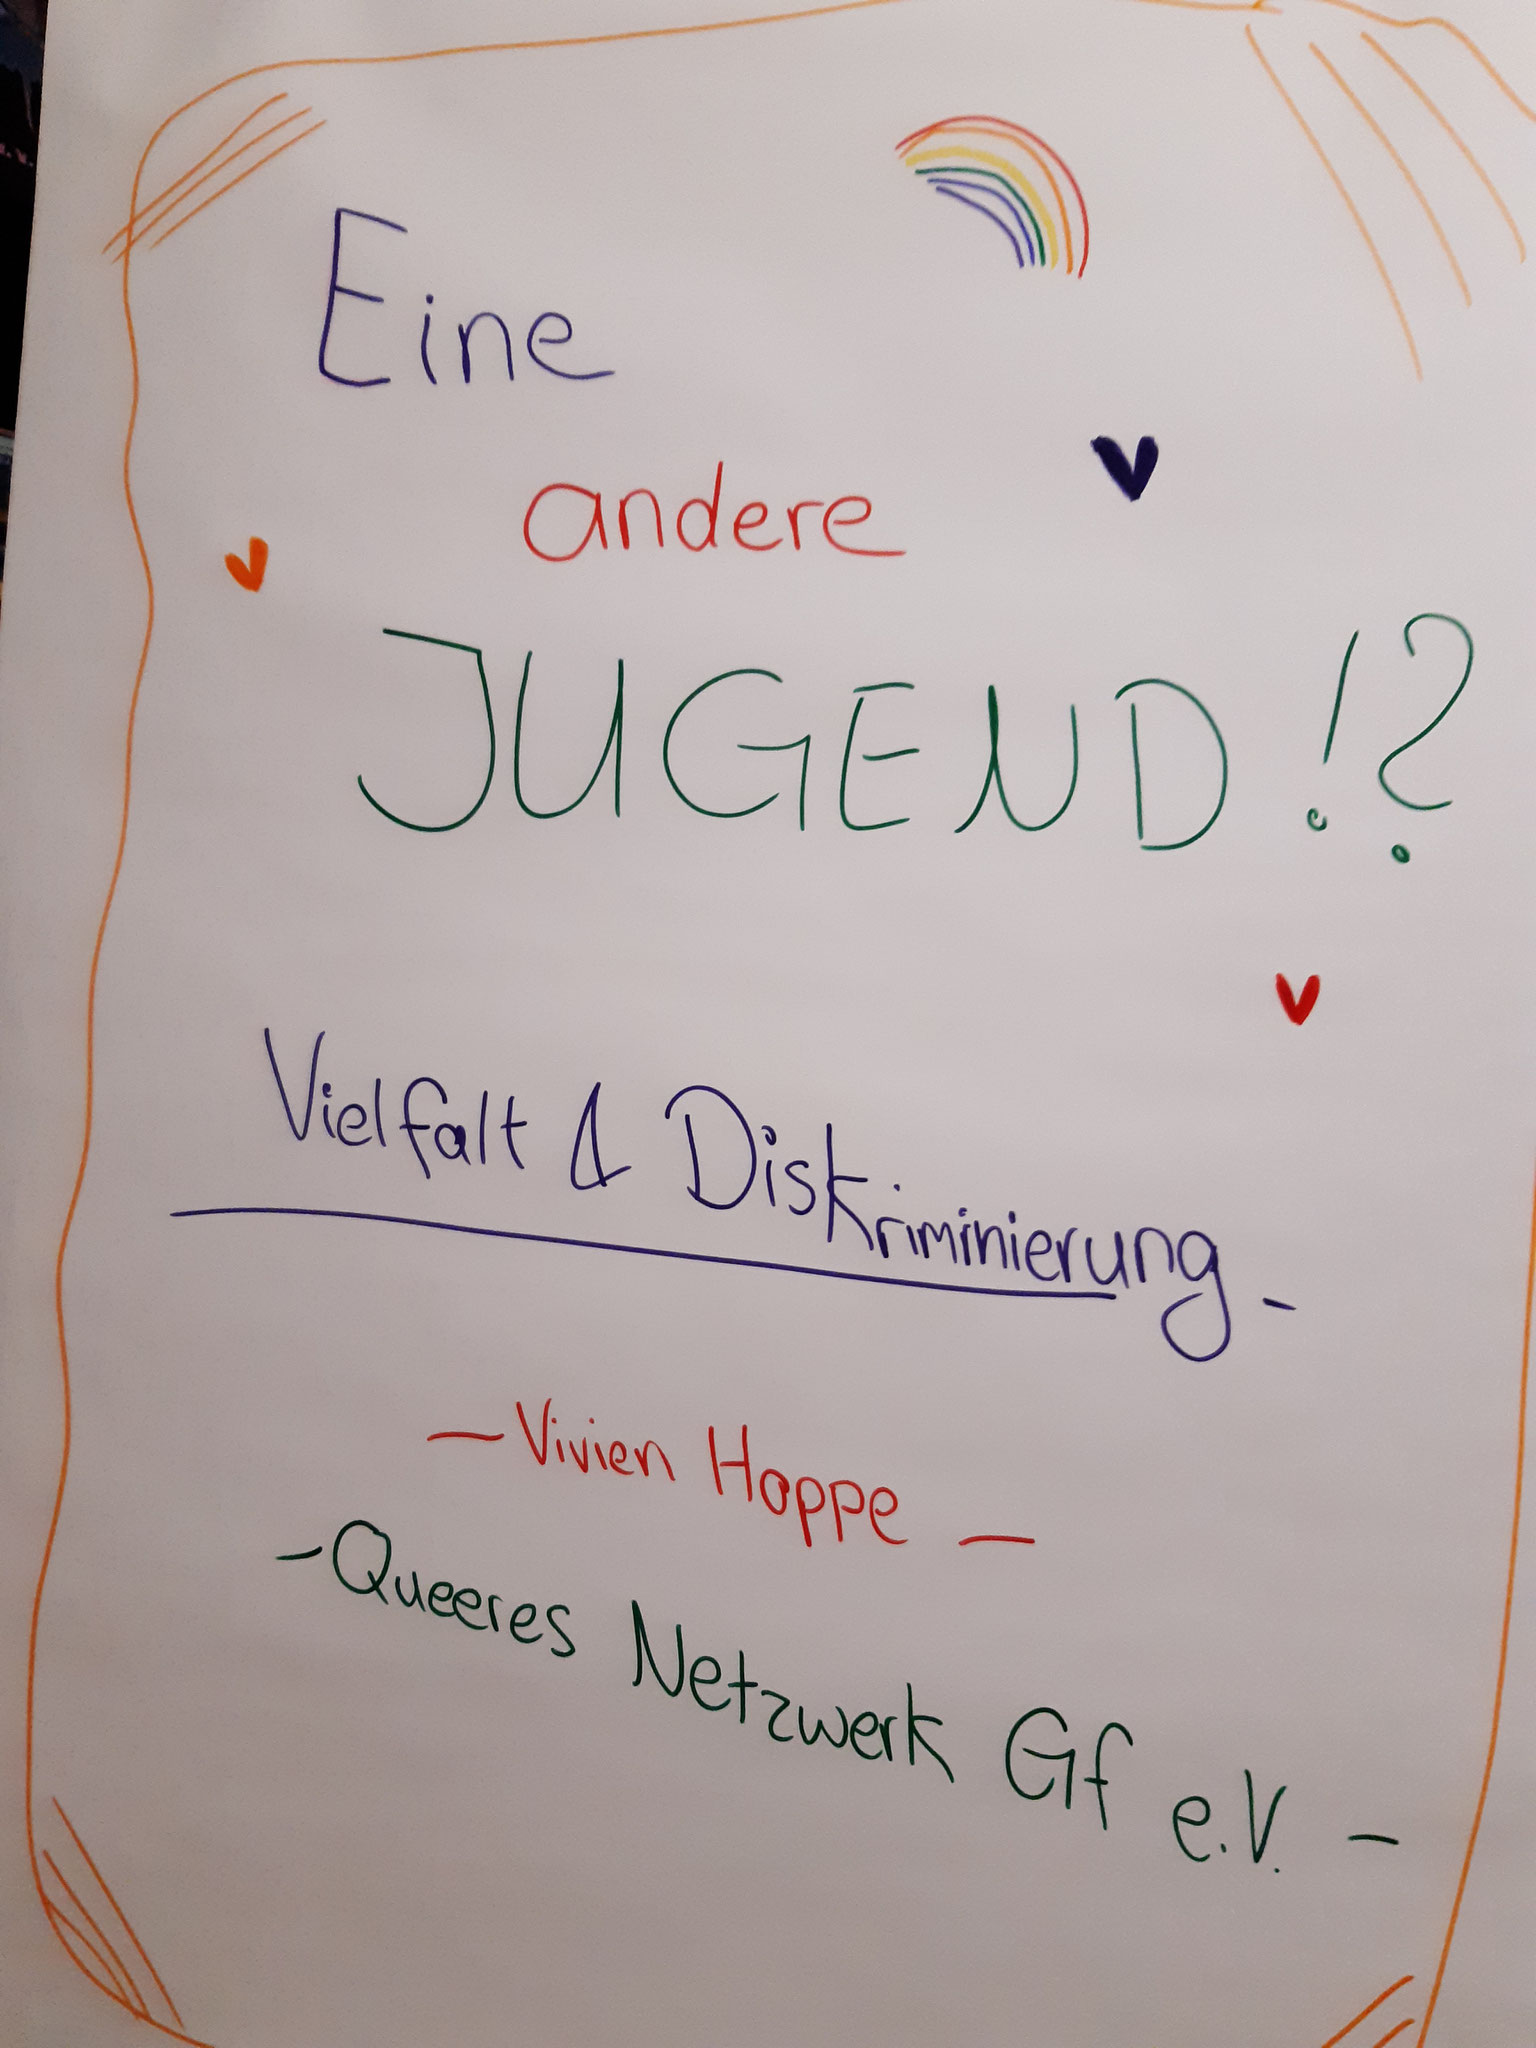 Eine
andere
JUGEND!?
Vielfalt & Diskriminierung -
- Vivien Hoppe -
- Queeres Netzwerk Gf e.V. -